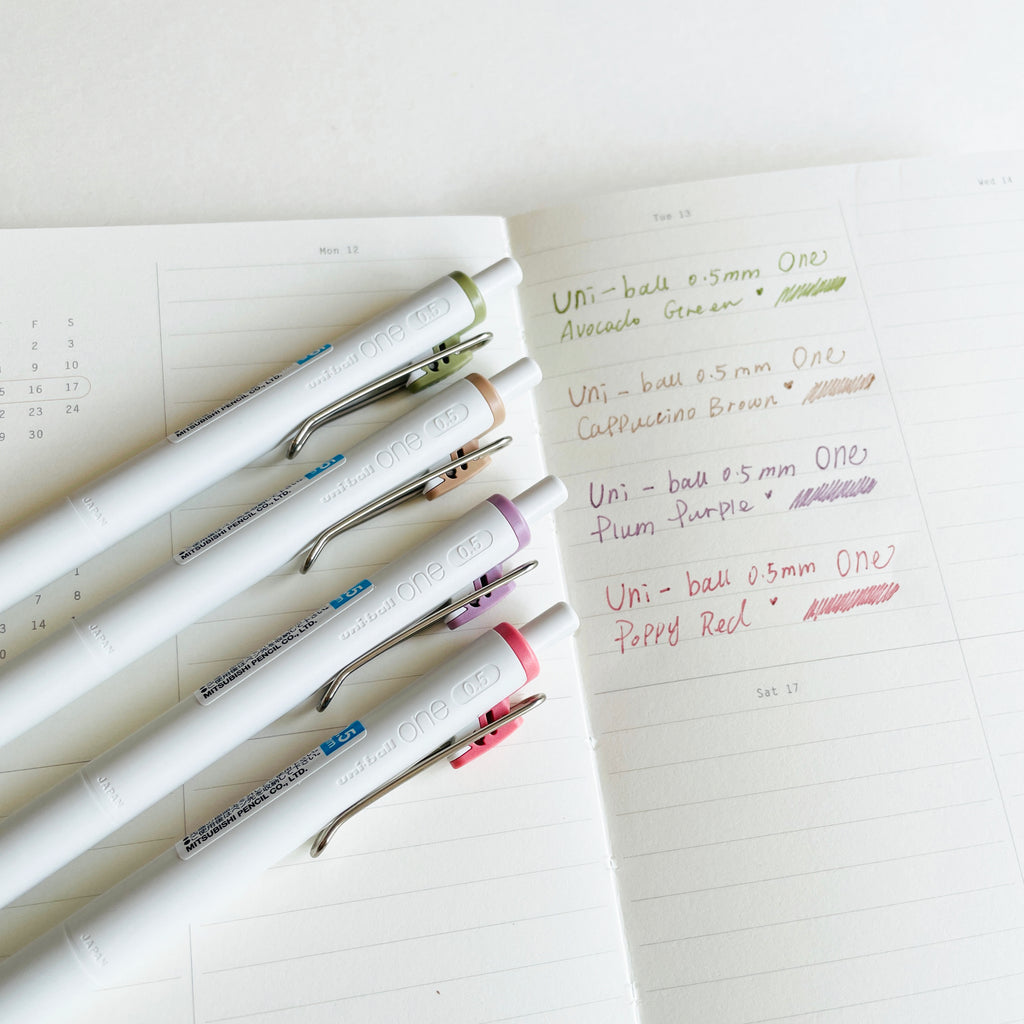 Mon 12
F S
2 3
9 10
16 17
23 24
30
1
7 8
14
uni-ball one 0.5
MITSUBISHI PENCIL CO., LTD.
JAPAN
uni-ball one 0.5
MITSUBISHI PENCIL CO., LTD.
JAPAN
uni-ball one 0.5
MITSUBISHI PENCIL CO., LTD.
JAPAN
uni-ball one 0.5
MITSUBISHI PENCIL CO., LTD.
JAPAN
Tue 13
Wed 14
Uni-ball 0.5mm One
Avocado Green
Uni-ball 0.5mm One
Cappuccino Brown
Uni-ball 0.5mm One
Plum Purple
Uni-ball 0.5mm One
Poppy Red
Sat 17